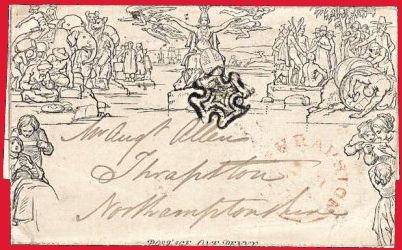 Mr Augt Allen
Thrapston
Northamptonshire
POSTAGE ONE PENNY.